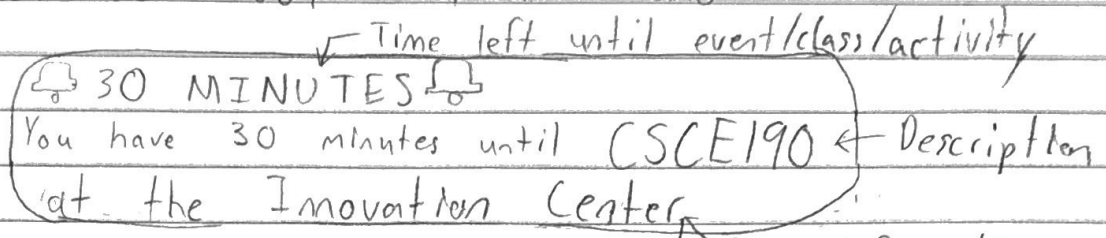 Time left until event/class/activity
30 MINUTES
You have 30 minutes until CSCE190 ← Description
at the Imovation Center